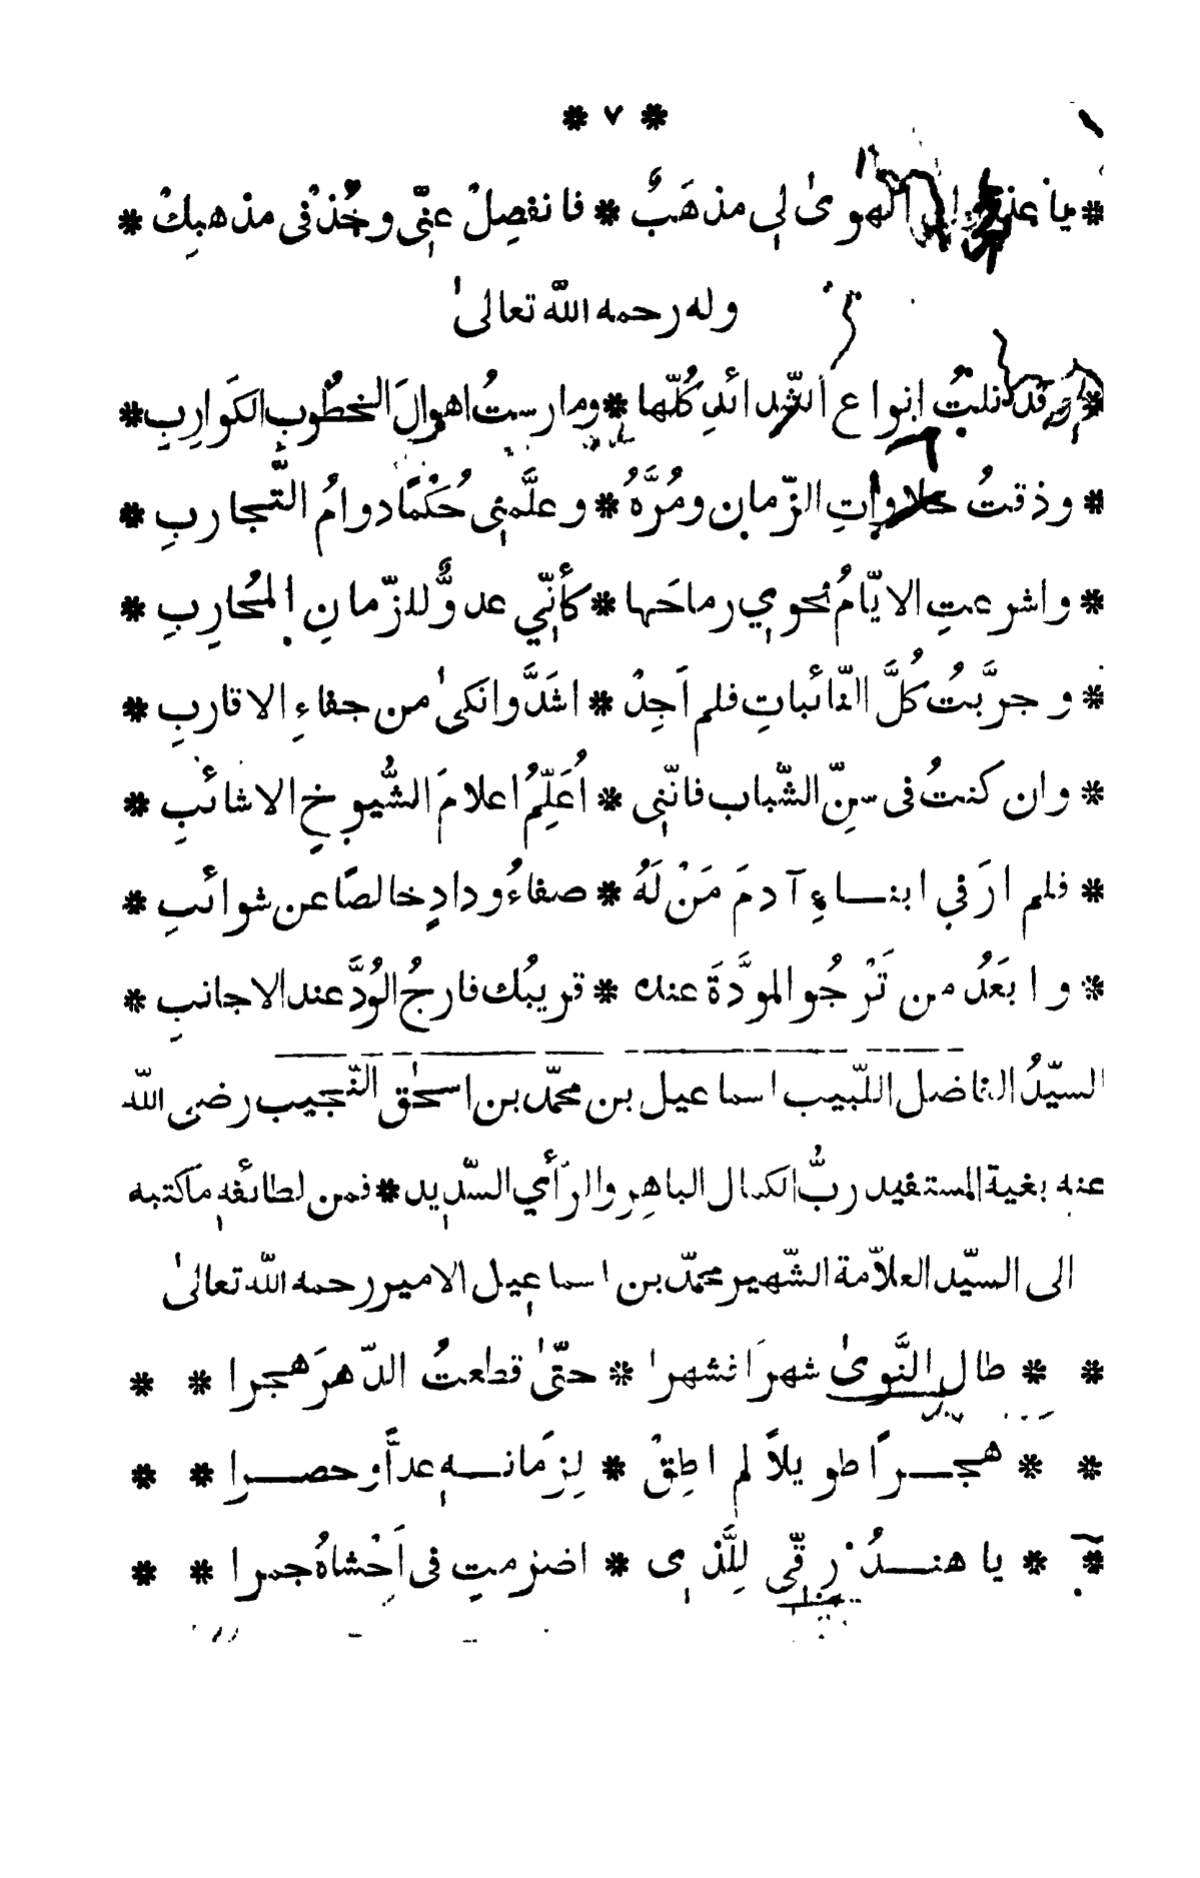 * ٧ *
* يا عذولي الهوىٰ لِي مذهَبٌ * فانفصِلْ عنِّي وخُذْ فى مذهبِكْ *
وله رحمه اللّه تعالىٰ
* وقد نلتُ انواع الشّدائدِ كُلِّها * ومارستُ اهوالَ الخطُوبِ الكَوارِبِ *
* وذقتُ حلاواتِ الزّمانِ ومُرَّهُ * وعلَّمنِى حُكْمًا دوامُ التَّجاربِ *
* واشرعتِ الايّامُ نحوي رماحَها * كأنِّي عدوٌّ للزّمانِ المُحارِبِ *
* وجرَّبتُ كُلَّ النّائباتِ فلم اَجِدْ * اشَدَّ وانَكىٰ من جفاءِ الاقاربِ *
* وان كنتُ فى سِنِّ الشّباب فانّنِى * اُعَلِّمُ اعلامَ الشُّيوخِ الاشائبِ *
* فلم ارَ في ابنــاءِ آدمَ مَنْ لَهُ * صفاءُ ودادٍ خالصًا عن شوائبِ *
* وابعَدُ من تَرْجُو المودَّةَ عنده * قريبُك فارجُ الوُدَّ عند الاجانبِ *
السيّدُ الفاضل اللّبيب اسماعيل بن محمّد بن اسحٰق النّجيب رضى اللّه
عنه بغية المستفيد ربُّ الكمال الباهِر والرّأي السّديد * فمن لطائفهِ ماكتبه
الى السيّد العلاّمة الشّهير محمّد بن اسماعيل الامير رحمه اللّه تعالىٰ
* * طال النَّوىٰ شهرًا فشهرا * حتّىٰ قطعتُ الدّهرَ هجرا * *
* * هجــرًا طويلاً لم اطِقْ * لِزمَانــهِ عدًّا وحصــرا * *
* * يا هنــدُ رِقِّى لِلَّذِى * اضرمتِ فى اَحْشاهُ جمرا * *